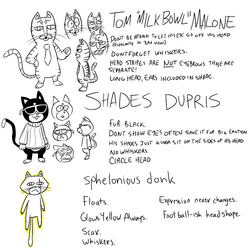 TOM "MILKBOWL" MALONE
DON'T BE AFRAID TO LET HIS EYES GO OFF HIS HEAD
DON'T FORGET WHISKERS.
HEAD STRIPES ARE NOT EYEBROWS. THEY ARE
SEPARATE!
LONG HEAD, EARS INCLUDED IN SHAPE.
SHADES DUPRIS
FUR BLACK.
DON'T SHOW EYES OFTEN. SAVE IT FOR BIG EMOTION
HIS SHADES JUST KINDA SIT ON THE SIDES OF HIS HEAD
NO WHISKERS
CIRCLE HEAD
sphelonious donk
Floats.
Expression never changes.
Glows Yellow Always.
Football-ish head shape.
Scar.
Whiskers.